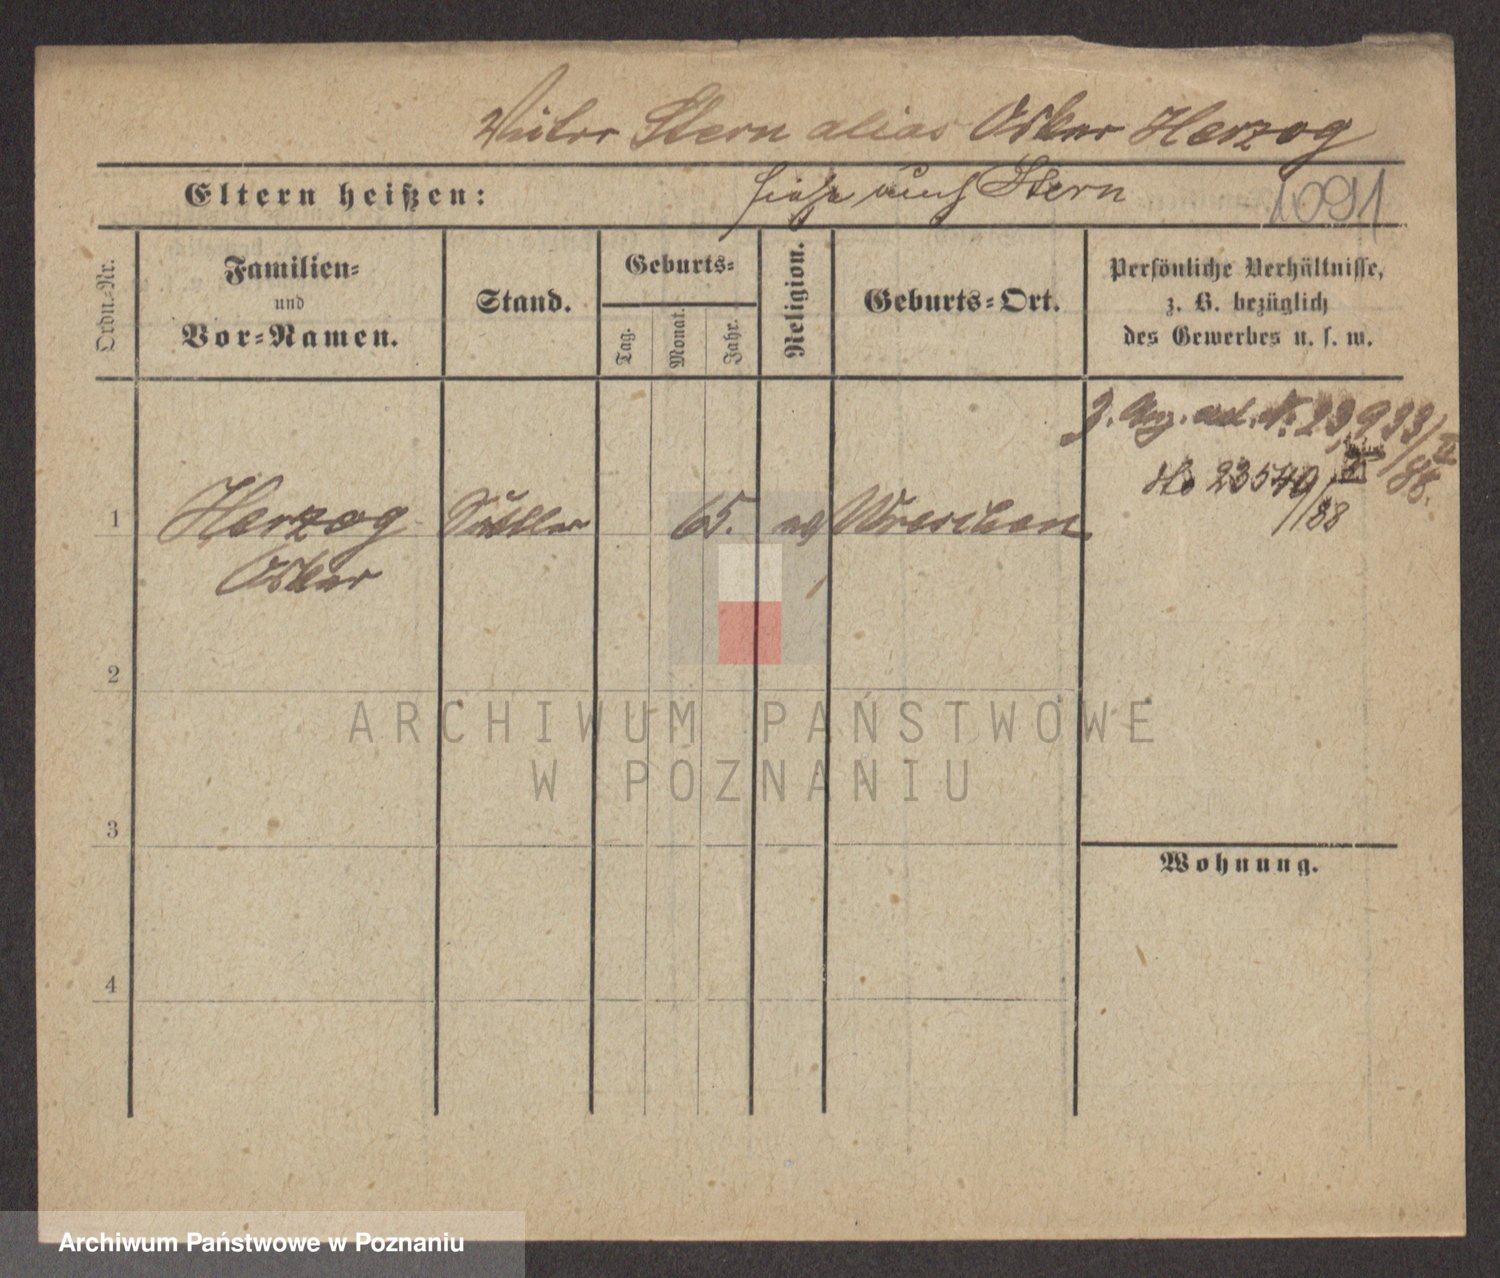 Stern alias Oskar Herzog
Eltern heißen:
siehe auch Stern
1091
Ordn.-Nr.
Familien-
und
Vor-Namen.
Stand.
Geburts-
Tag.
Monat.
Jahr.
Religion.
Geburts-Ort.
Persönliche Verhältnisse,
z. B. bezüglich
des Gewerbes u. s. w.
23933/88.
23540/88
1
Herzog
Oskar
Sattler
65.
Wreschen
2
3
4
Wohnung.
ARCHIWUM PAŃSTWOWE
W POZNANIU
Archiwum Państwowe w Poznaniu